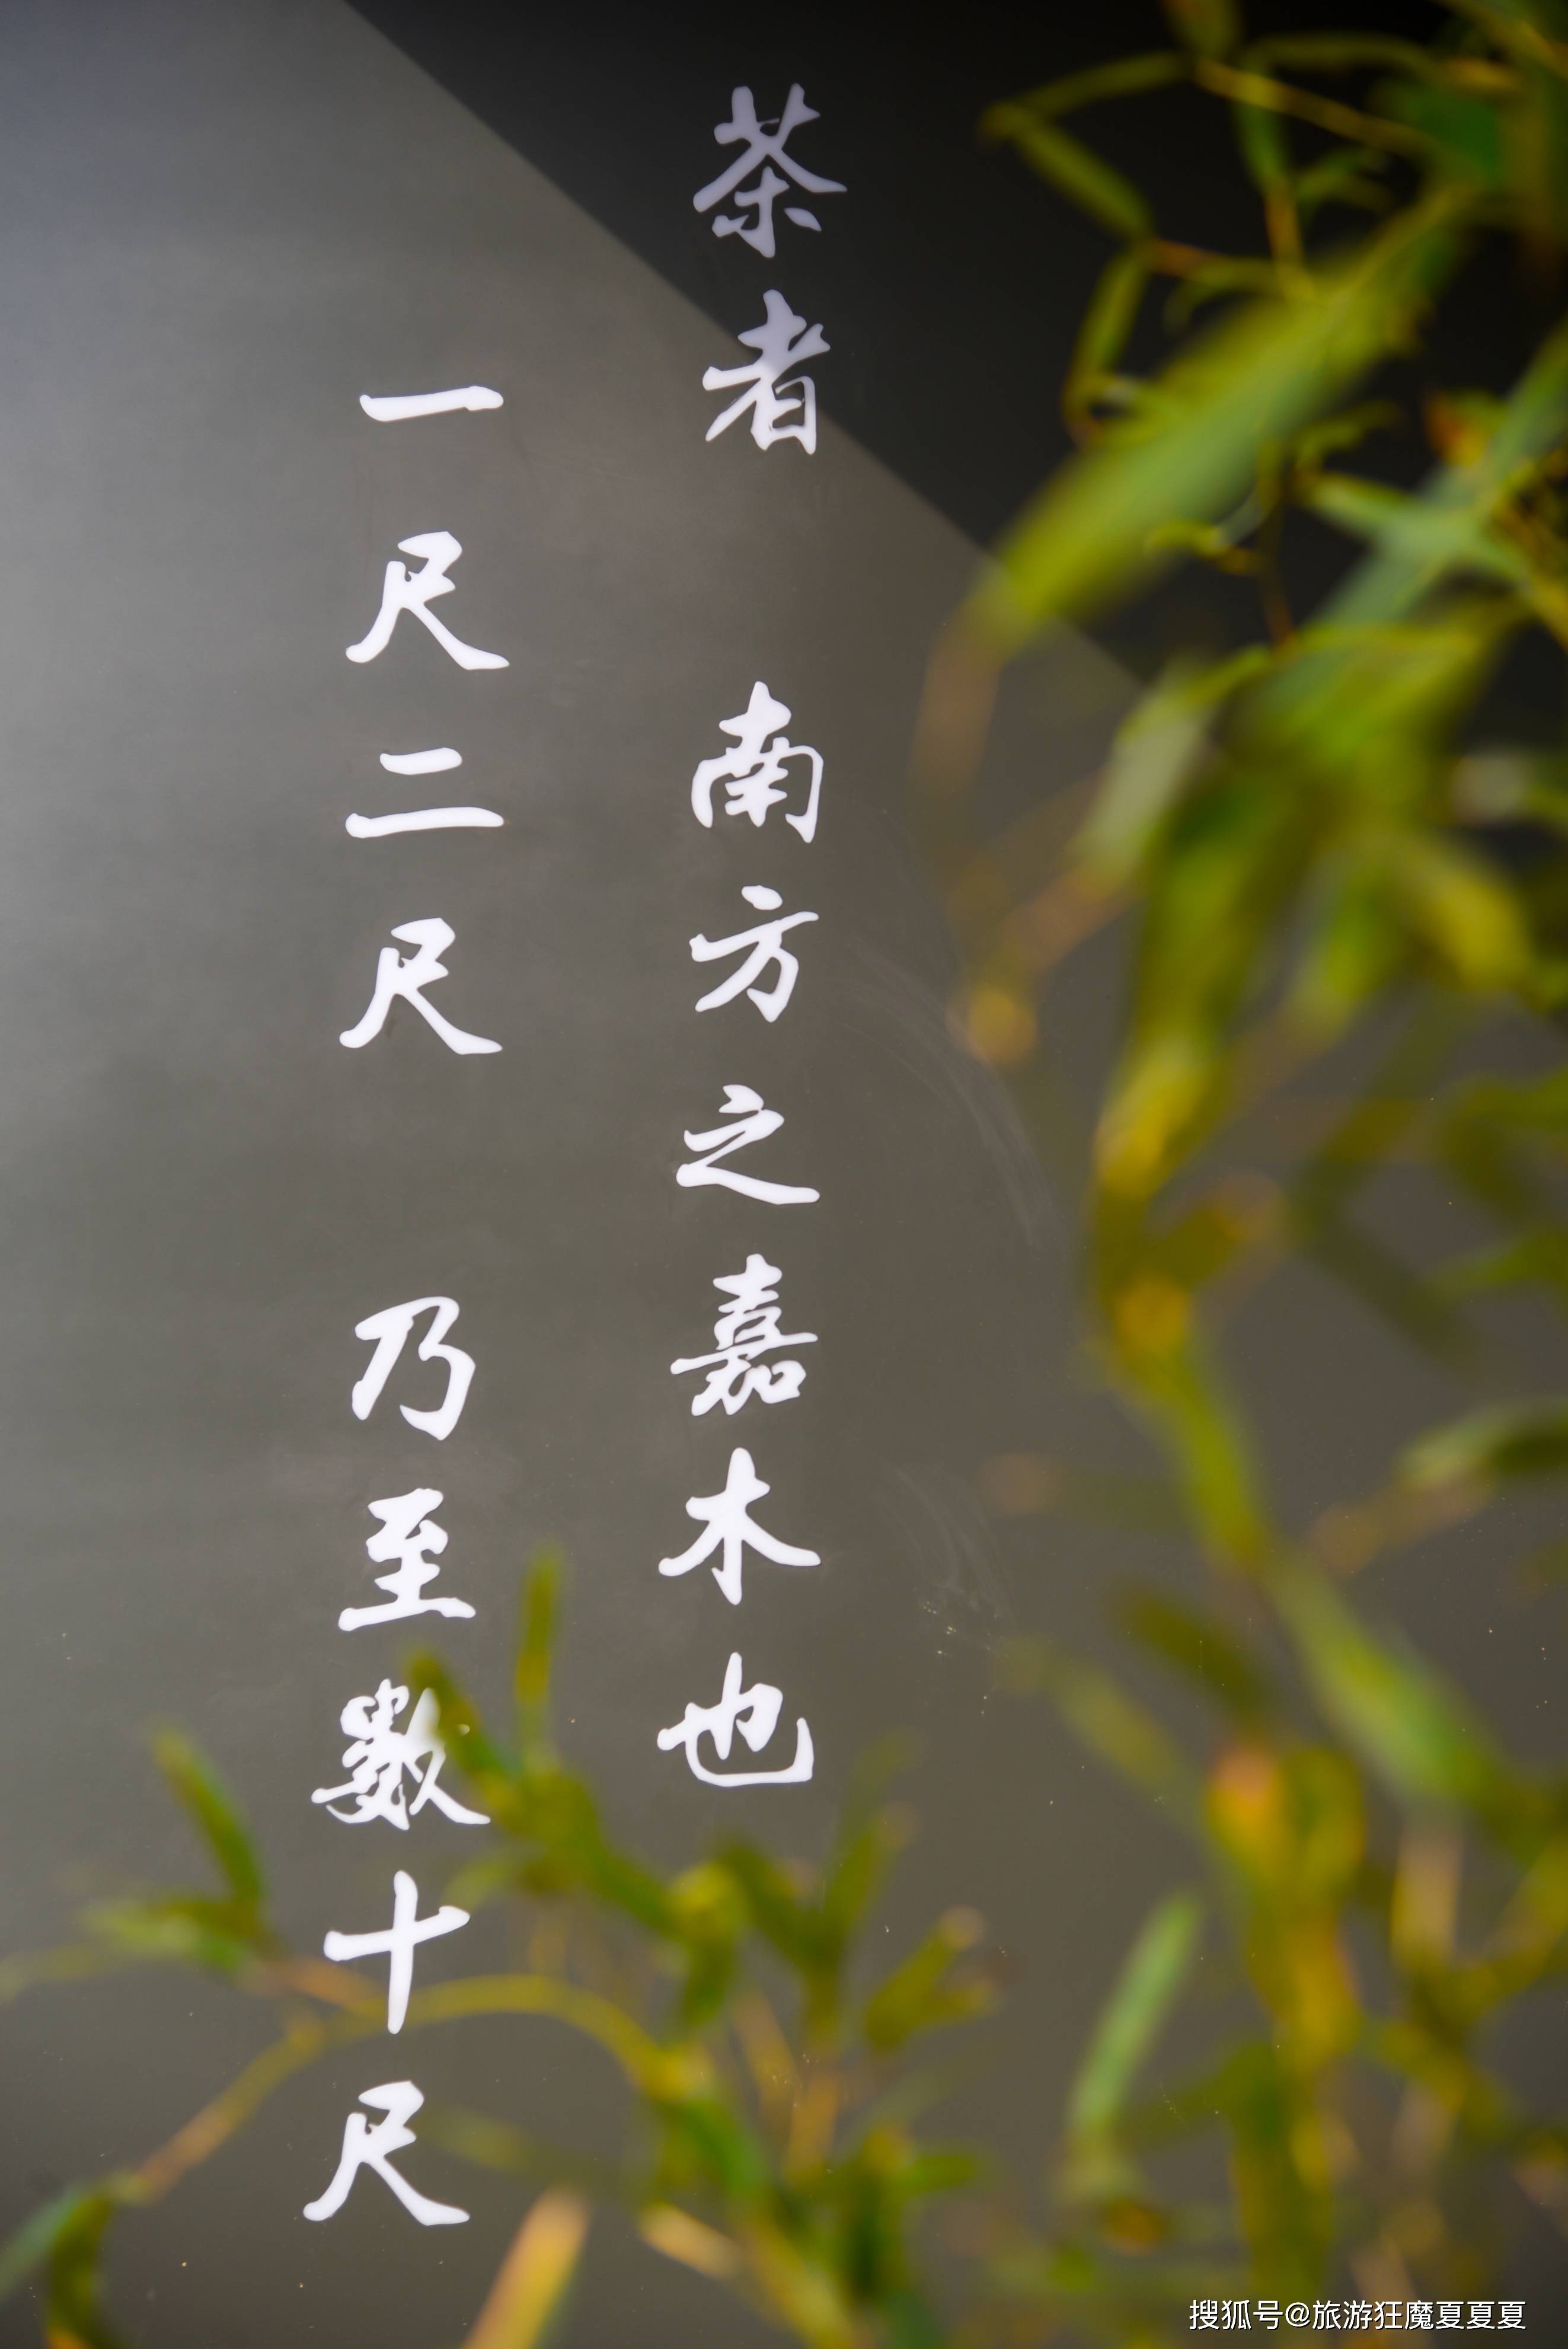 茶者 南方之嘉木也
一尺二尺 乃至數十尺
搜狐号@旅游狂魔夏夏夏